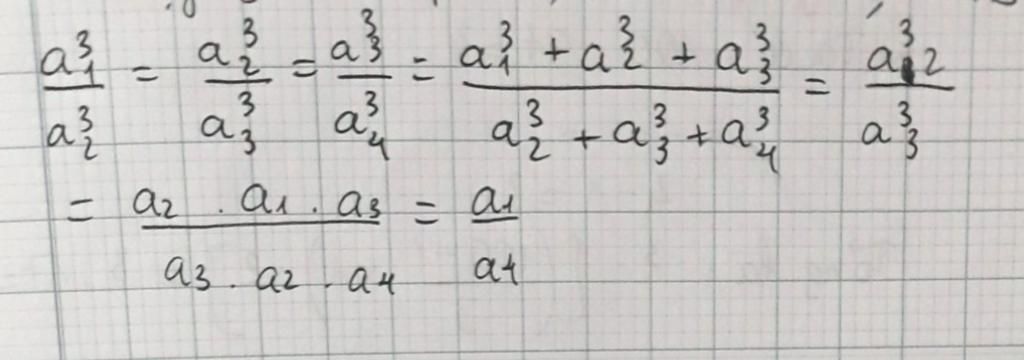 a₁³/a₂³ = a₂³/a₃³ = a₃³/a₄³ = (a₁³ + a₂³ + a₃³)/(a₂³ + a₃³ + a₄³) = a₂³/a₃³
= (a₂ . a₁ . a₃)/(a₃ . a₂ . a₄) = a₁/a₄